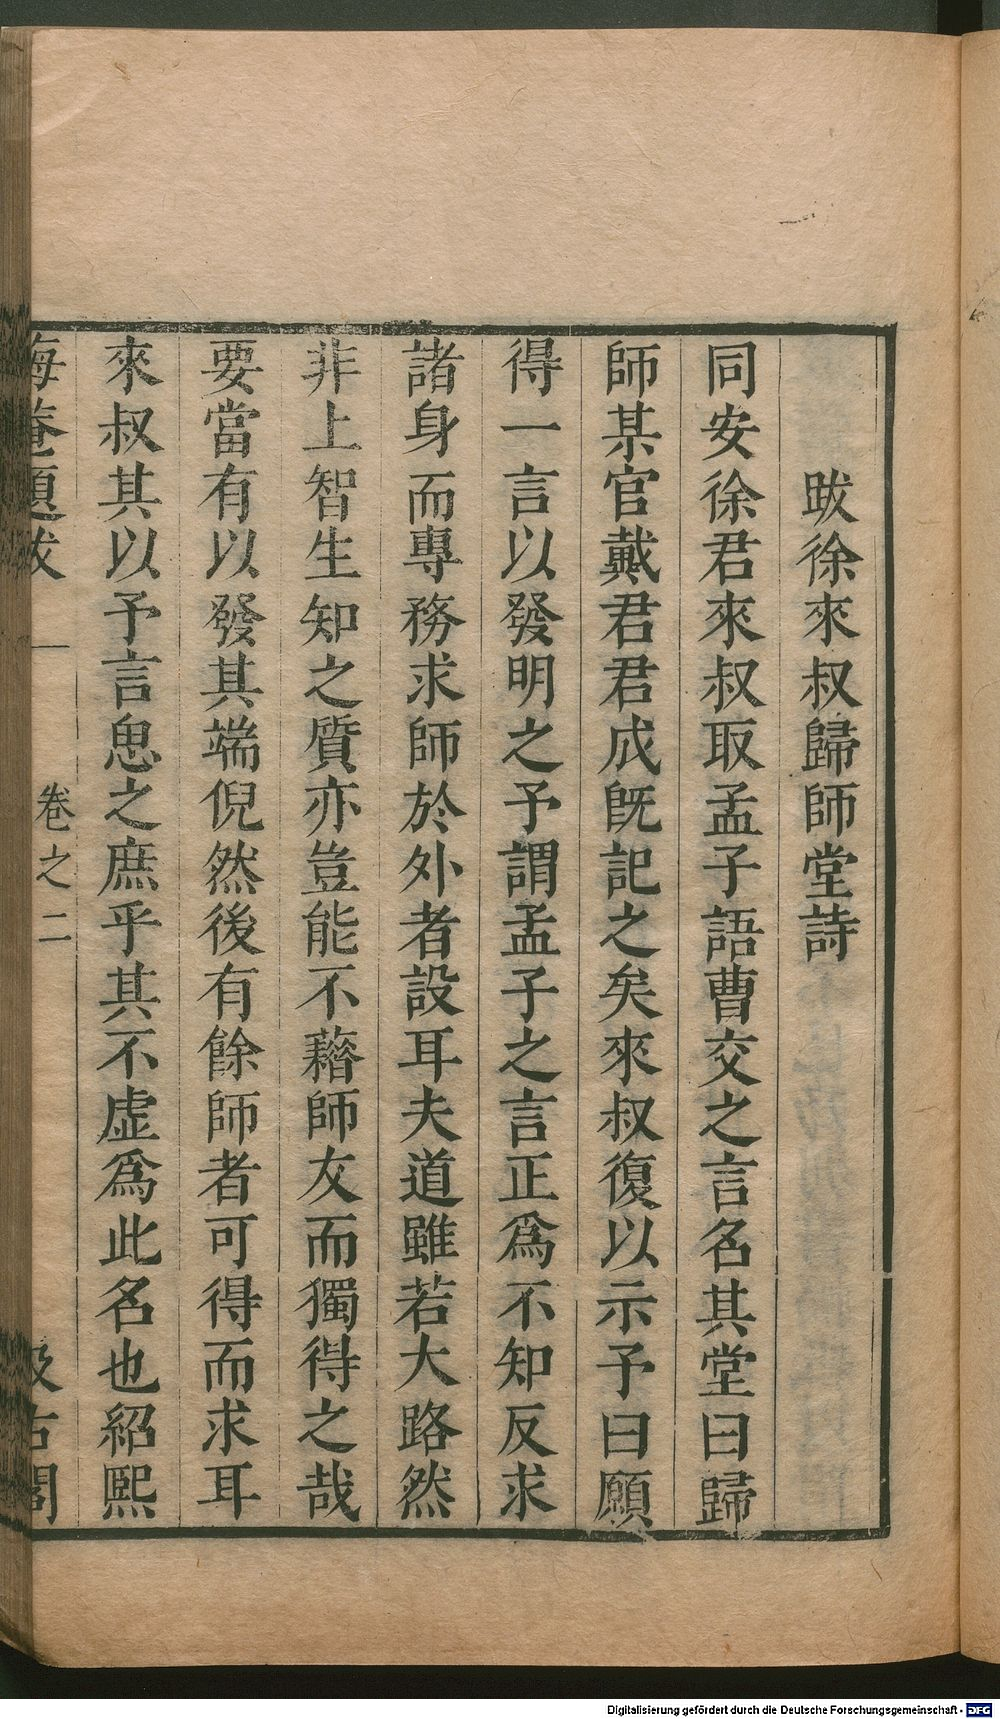 跋徐來叔歸師堂詩
同安徐君來叔取孟子語曹交之言名其堂曰歸
師某官戴君君成旣記之矣來叔復以示予曰願
得一言以發明之予謂孟子之言正爲不知反求
諸身而專務求師於外者設耳夫道雖若大路然
非上智生知之質亦豈能不藉師友而獨得之哉
要當有以發其端倪然後有餘師者可得而求耳
來叔其以予言思之庶乎其不虛爲此名也紹熙
晦菴題跋 卷之二 汲古閣
Digitalisierung gefördert durch die Deutsche Forschungsgemeinschaft - DFG